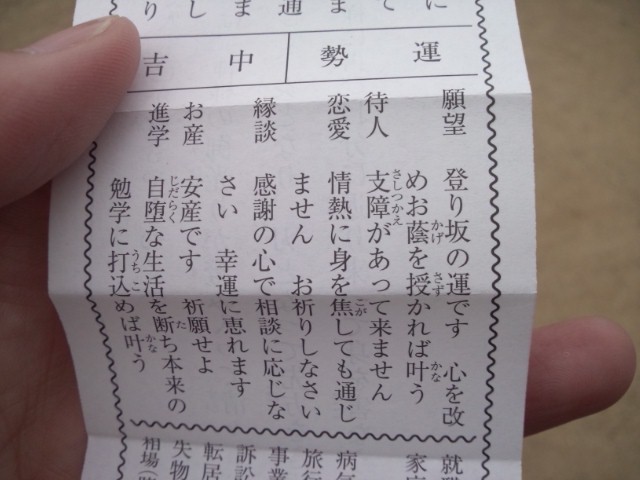 に
て
ま
通
ま
し
り
運勢
中吉
願望 登り坂の運です 心を改
めお蔭を授かれば叶う
かげ さず かな
待人 支障があって来ません
さしつかえ
恋愛 情熱に身を焦しても通じ
こが
ません お祈りしなさい
縁談 感謝の心で相談に応じな
さい 幸運に恵れます
お産 安産です 祈願せよ
進学 自堕な生活を断ち本来の
じだらく た
勉学に打込めば叶う
うちこ かな
就
家
病
旅行
事業
訴訟
転居
失物
相場